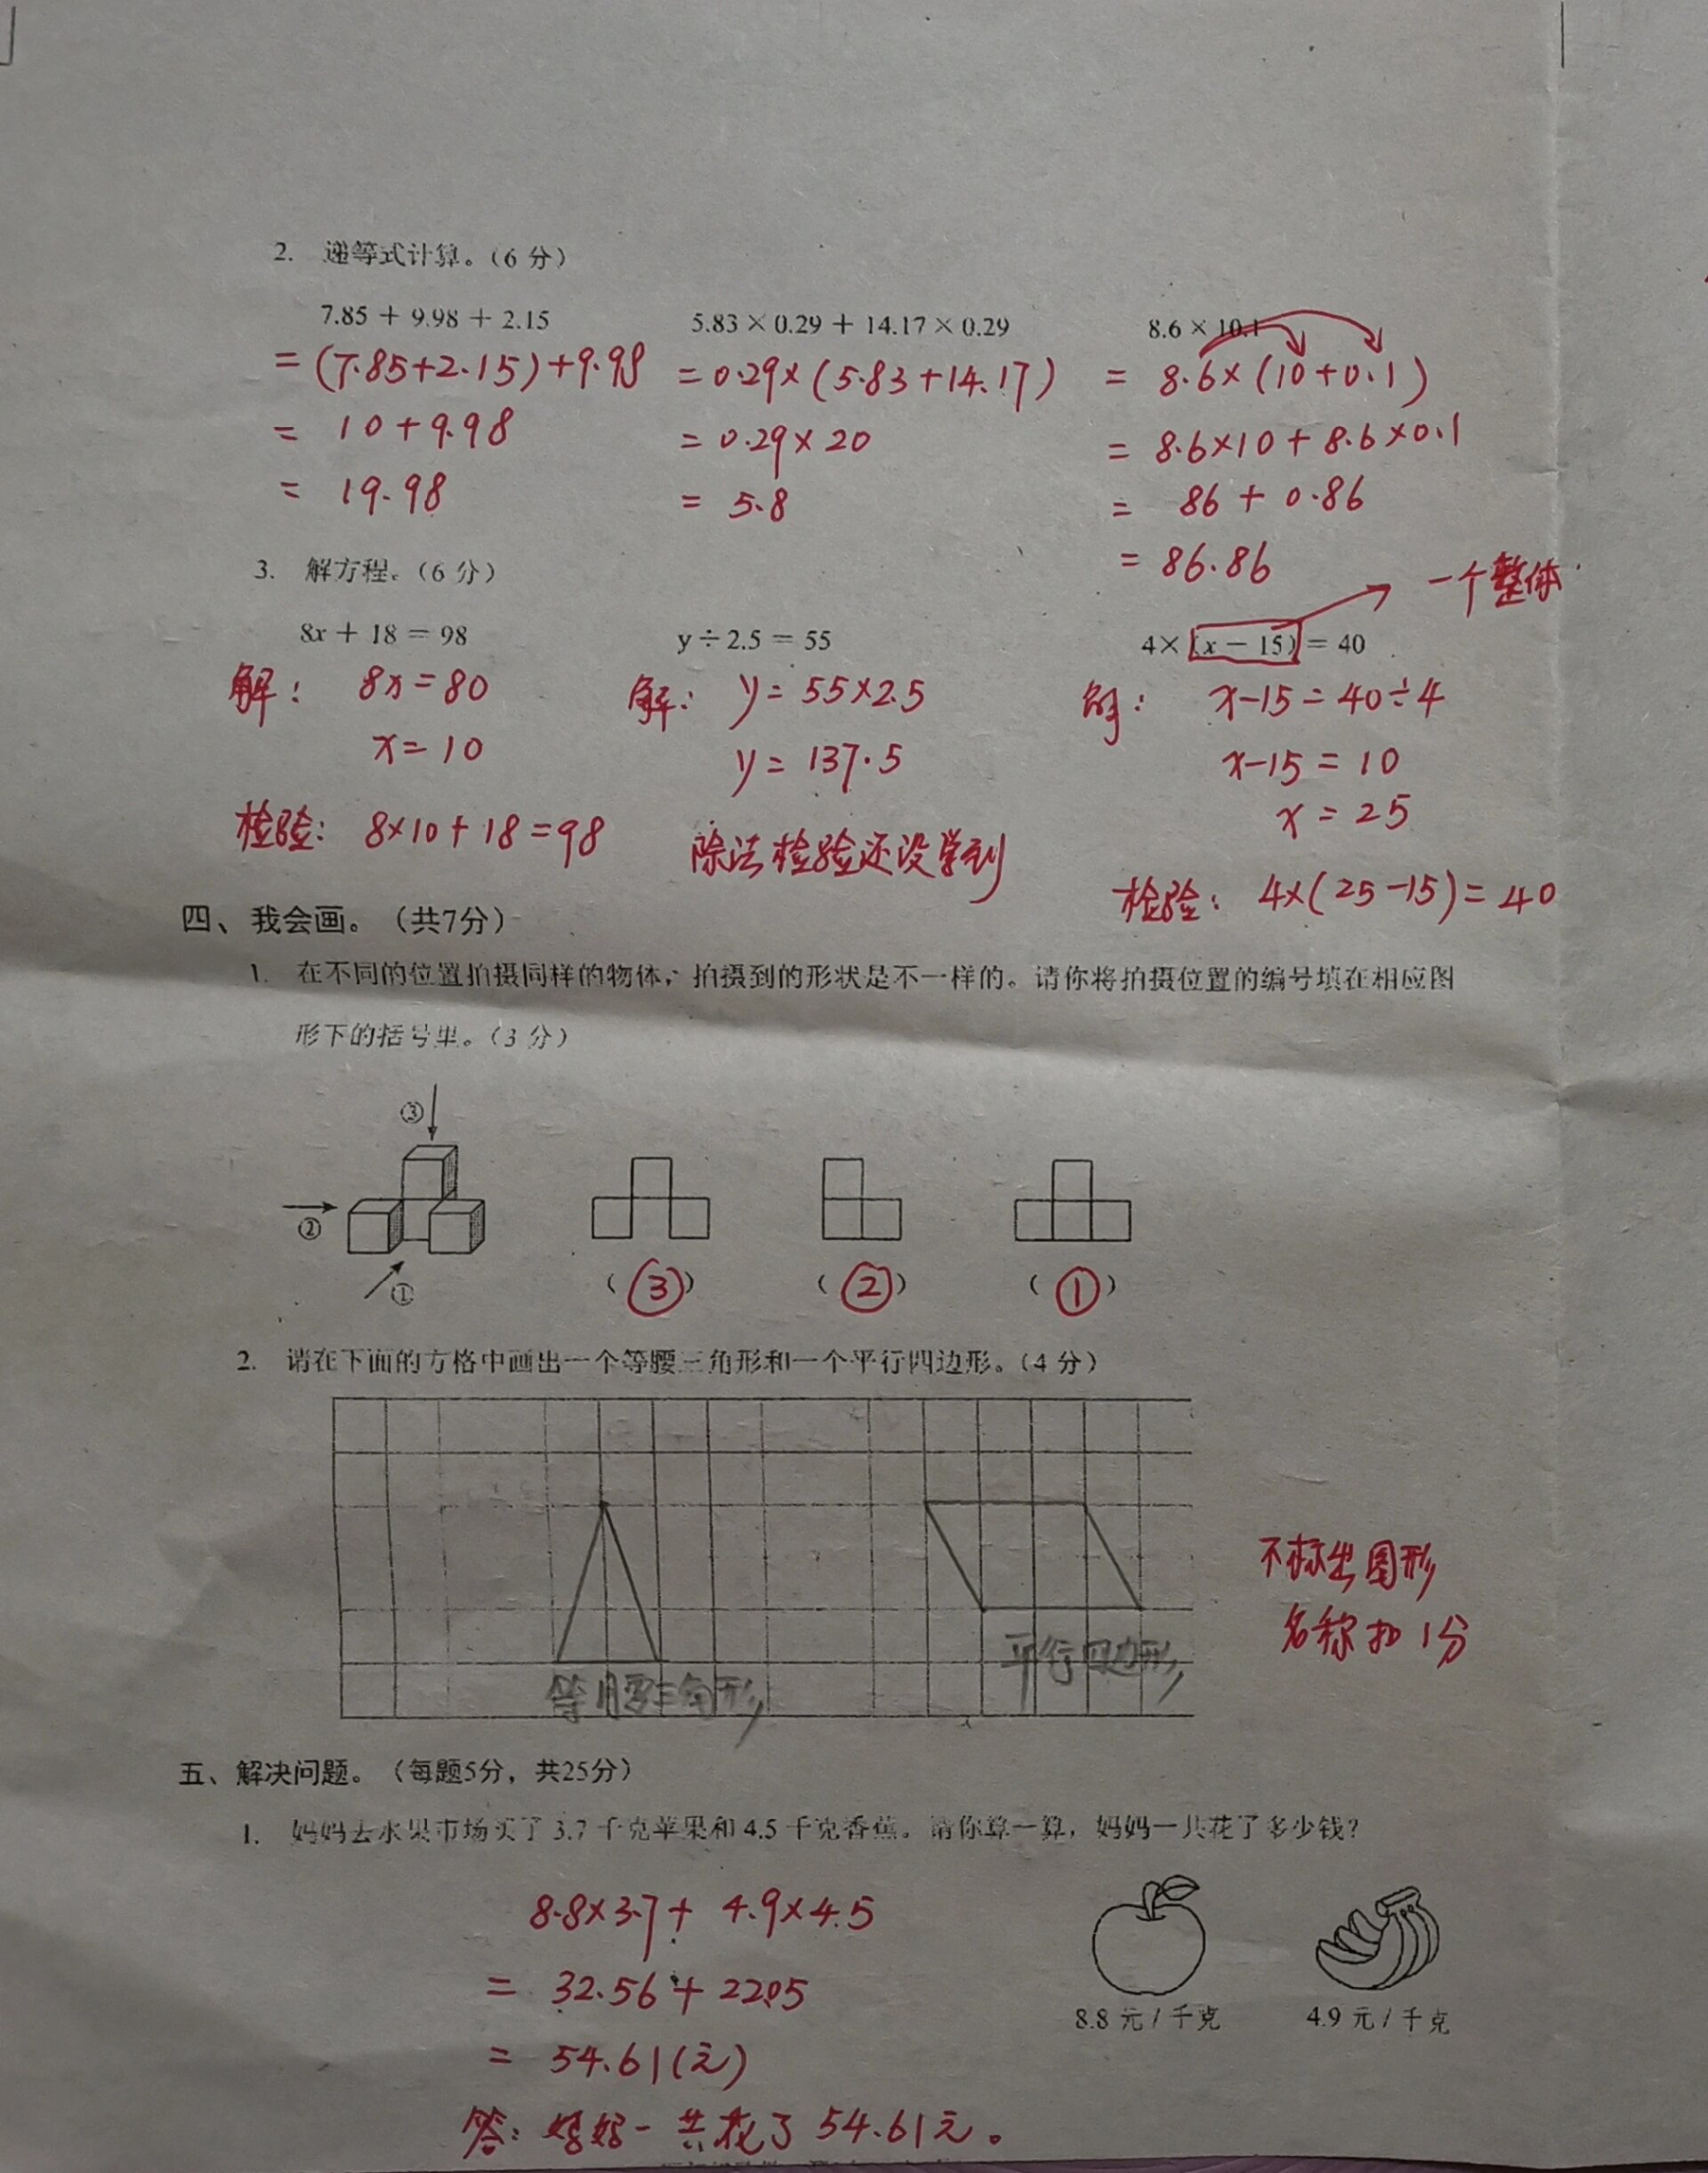 2. 递等式计算。(6 分)
7.85 + 9.98 + 2.15
5.83 × 0.29 + 14.17 × 0.29
8.6 × 10.1
= (7.85+2.15)+9.98
= 0.29×(5.83+14.17)
= 8.6×(10+0.1)
= 10+9.98
= 0.29×20
= 8.6×10+8.6×0.1
= 19.98
= 5.8
= 86+0.86
= 86.86
3. 解方程。(6 分)
一个整体
8x + 18 = 98
y ÷ 2.5 = 55
4×(x − 15) = 40
解: 8x=80
解: y=55×2.5
解: x-15=40÷4
x=10
y=137.5
x-15=10
x=25
检验: 8×10+18=98
除法检验还没学到
检验: 4×(25-15)=40
四、我会画。(共7分)
1. 在不同的位置拍摄同样的物体,拍摄到的形状是不一样的。请你将拍摄位置的编号填在相应图
形下的括号里。(3 分)
③
②
①
(③)
(②)
(①)
2. 请在下面的方格中画出一个等腰三角形和一个平行四边形。(4 分)
等腰三角形
平行四边形
不标出图形
名称扣1分
五、解决问题。(每题5分,共25分)
1. 妈妈去水果市场买了 3.7 千克苹果和 4.5 千克香蕉。请你算一算,妈妈一共花了多少钱?
8.8×3.7+4.9×4.5
= 32.56+22.05
= 54.61(元)
8.8 元 / 千克
4.9 元 / 千克
答: 妈妈一共花了54.61元。